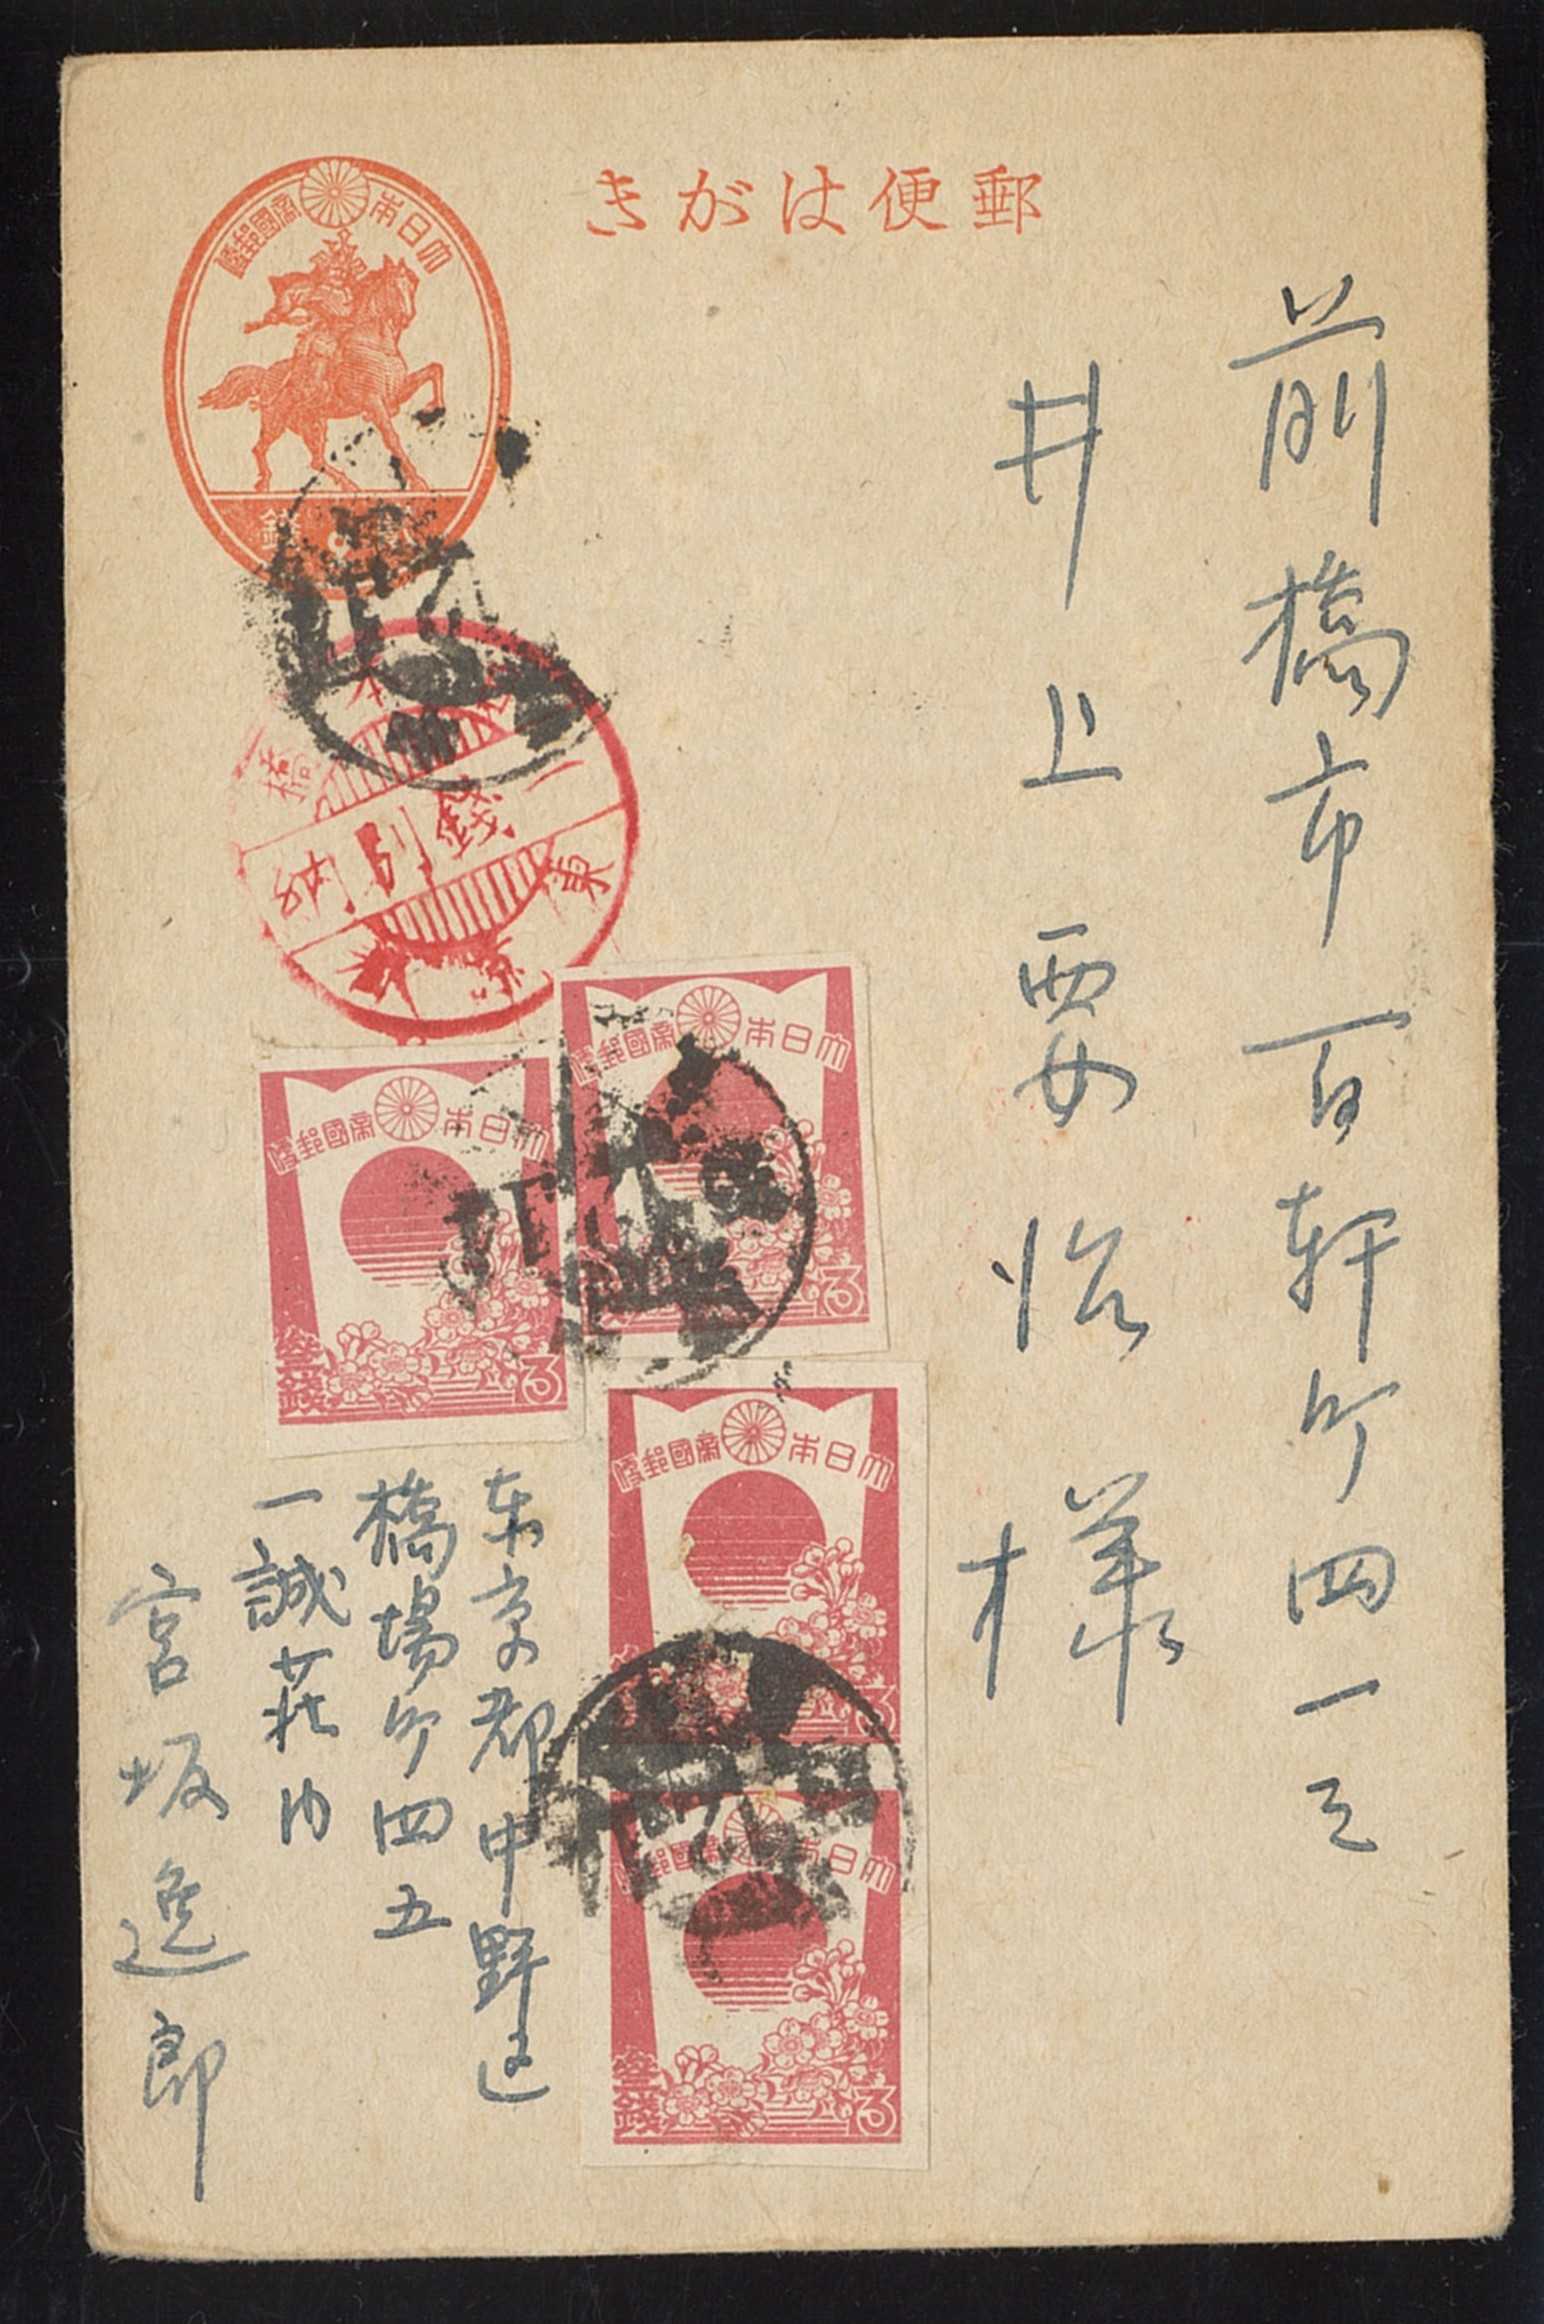 郵便はがき
大日本帝國郵便
錢
前橋市百軒町四一
井上要怡様
東京
橋
一錢 納
大日本帝國郵便
参錢
3
大日本帝國郵便
3
大日本帝國郵便
3
大日本帝國郵便
参錢
3
东京都中野区
橋場町四五
一誠荘内
宮坂逸郎